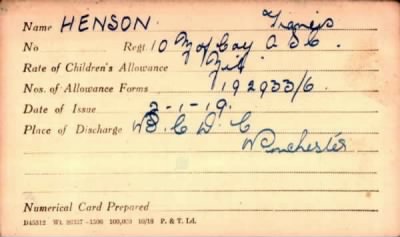 Name HENSON. Francis
No Regt. 10 M of Coy A S C.
Rate of Children's Allowance Nil
Nos. of Allowance Forms 192933/6.
Date of Issue 2-1-19.
Place of Discharge D C
Winchester
Numerical Card Prepared
D45312 Wt. 100,000 10/18 P. & T. Ld.